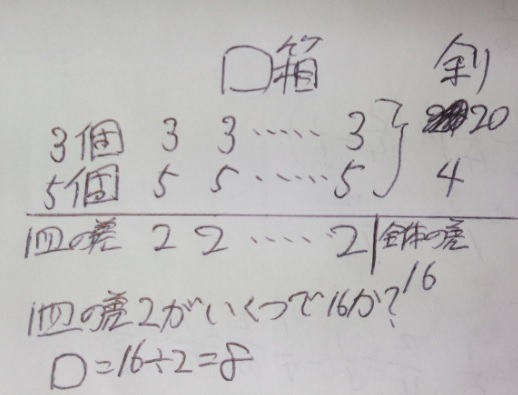 □箱 余り
3個 3 3 ‥‥‥ 3 20
5個 5 5 ‥‥‥ 5 4
1皿の差 2 2 ‥‥‥ 2 全体の差
16
1皿の差2がいくつで16か?
□=16÷2=8